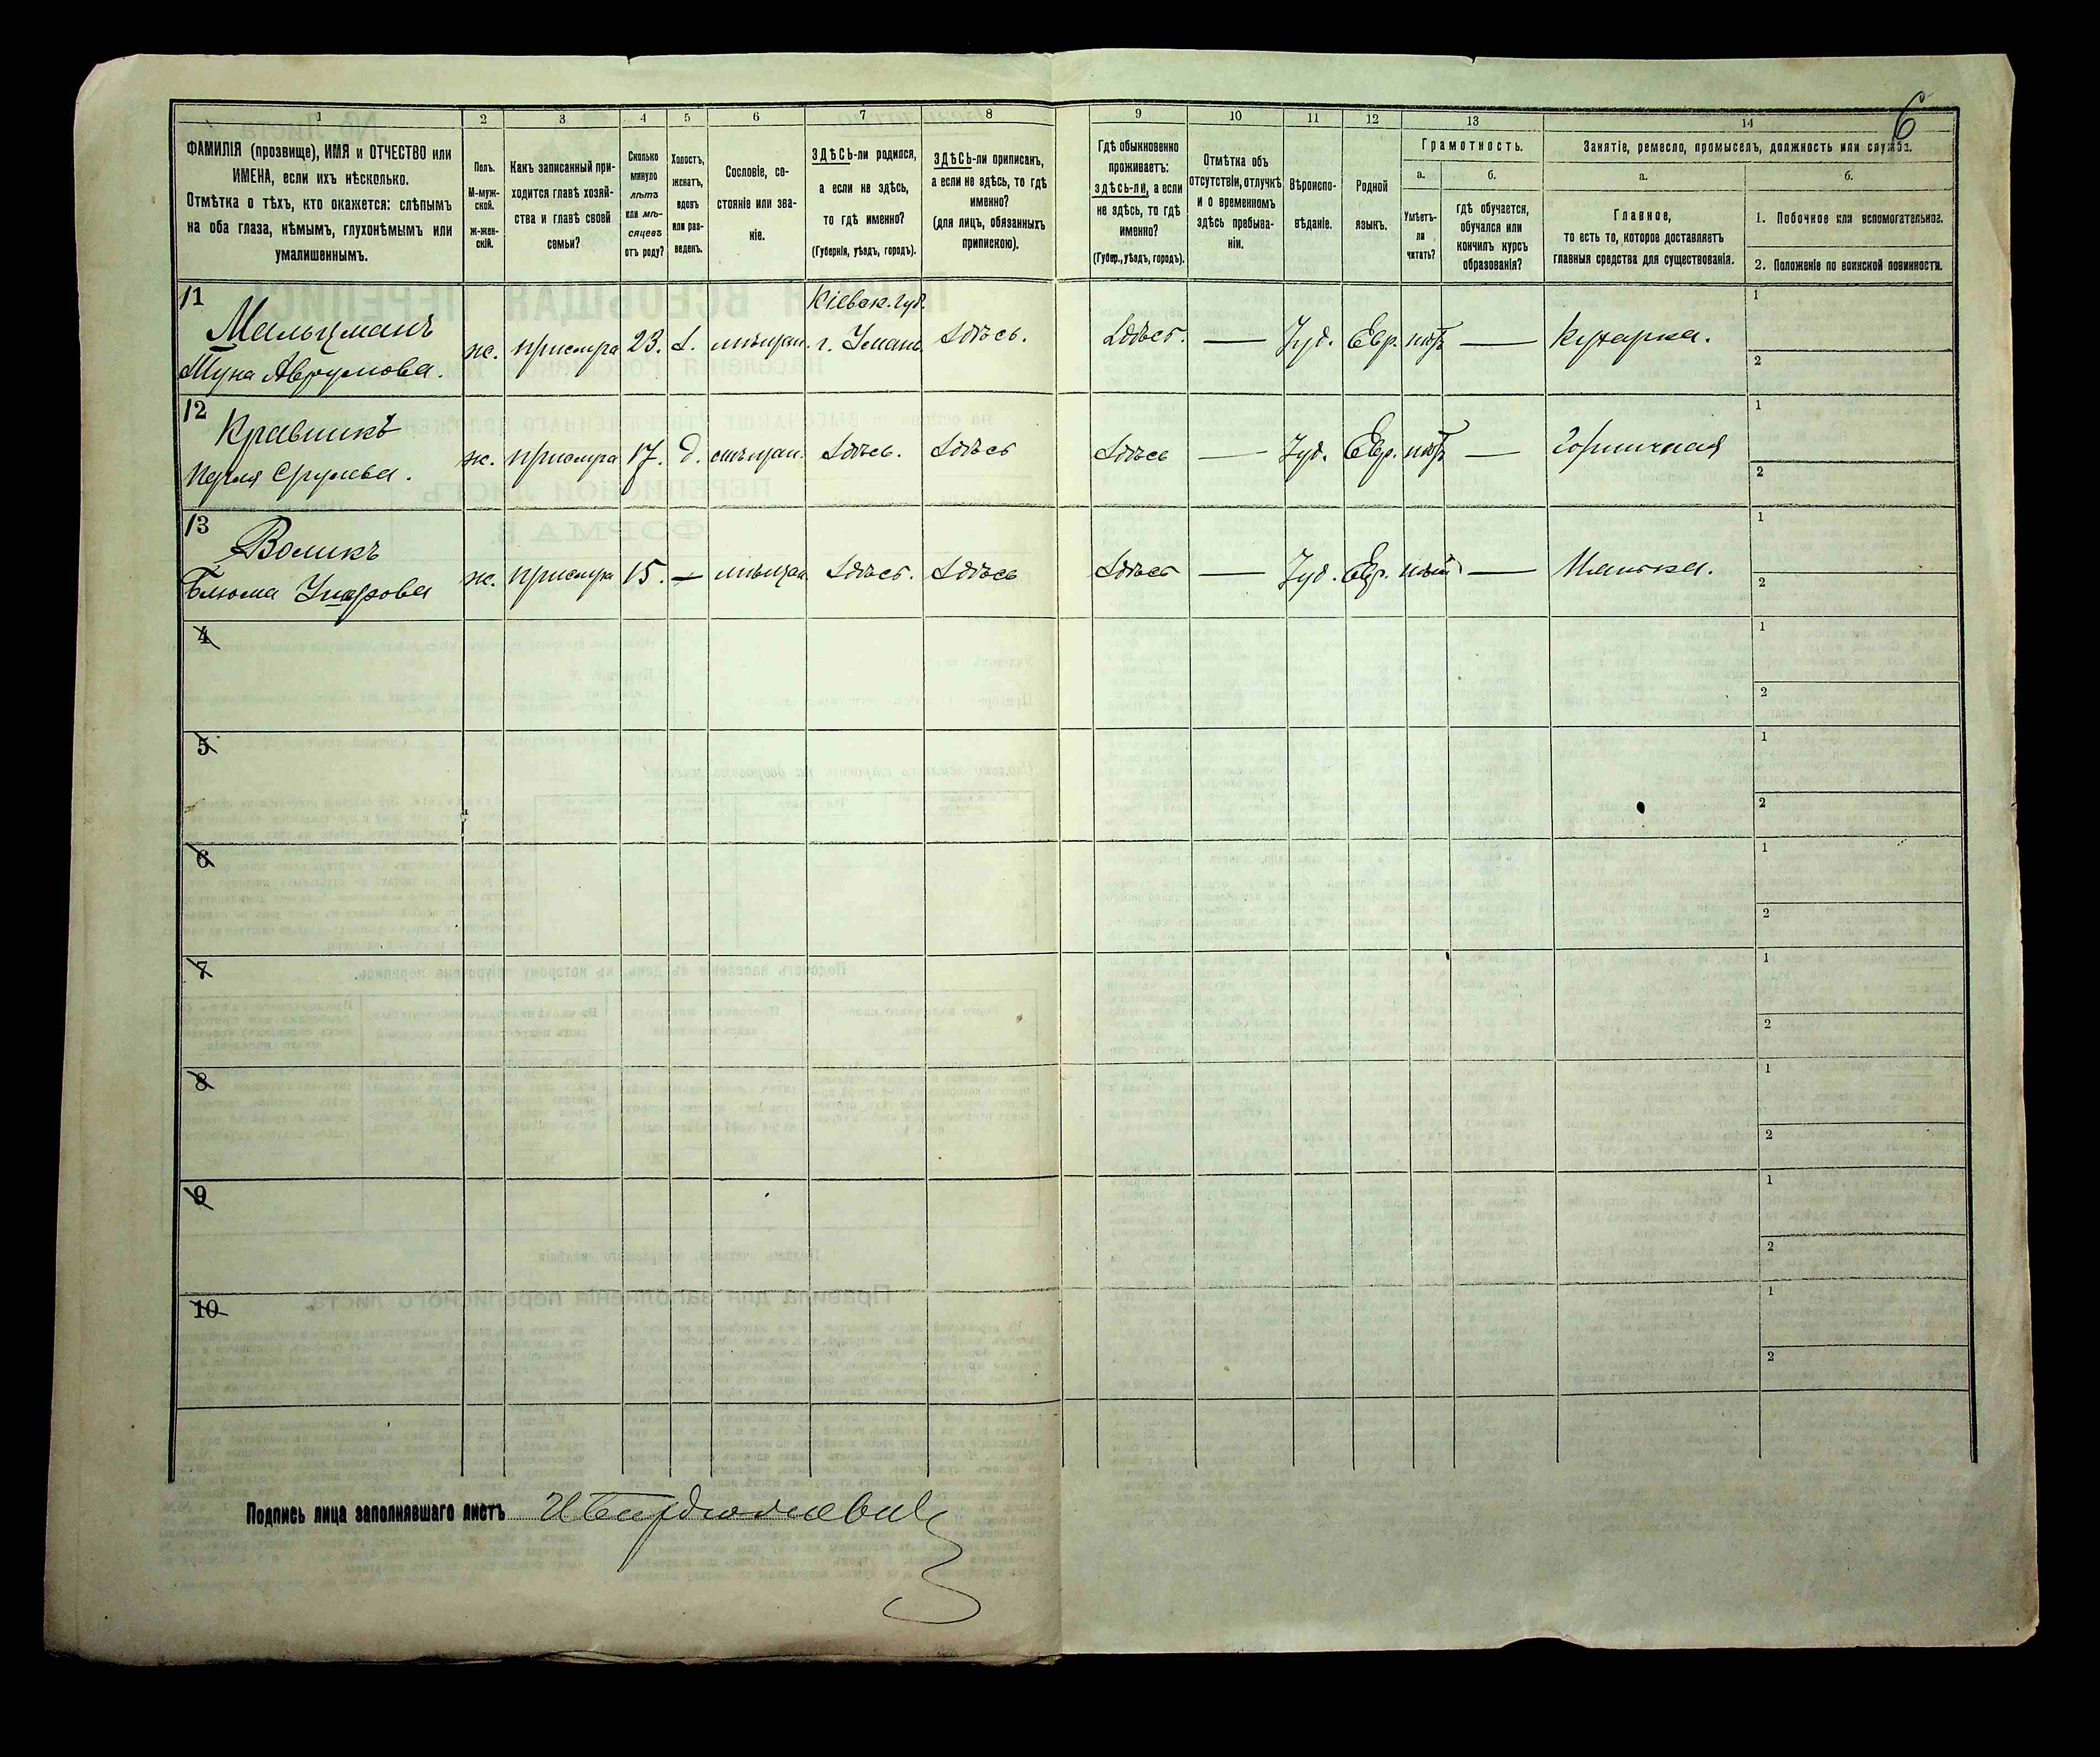 6
1 2 3 4 5 6 7 8 9 10 11 12 13 14
ФАМИЛІЯ (прозвище), ИМЯ и ОТЧЕСТВО или
ИМЕНА, если ихъ нѣсколько.
Отмѣтка о тѣхъ, кто окажется: слѣпымъ
на оба глаза, нѣмымъ, глухонѣмымъ или
умалишеннымъ.
Полъ.
М-муж-
ской.
Ж-жен-
скій.
Какъ записанный при-
ходится главѣ хозяй-
ства и главѣ своей
семьи?
Сколько
минуло
лѣтъ
или мѣ-
сяцевъ
отъ роду?
Холостъ,
женатъ,
вдовъ
или раз-
веденъ.
Сословіе, со-
стояніе или зва-
ніе.
ЗДѢСЬ-ли родился,
а если не здѣсь,
то гдѣ именно?
(Губернія, уѣздъ, городъ).
ЗДѢСЬ-ли приписанъ,
а если не здѣсь, то гдѣ
именно?
(для лицъ, обязанныхъ
припискою).
Гдѣ обыкновенно
проживаетъ:
здѣсь-ли, а если
не здѣсь, то гдѣ
именно?
(Губер., уѣздъ, городъ).
Отмѣтка объ
отсутствіи, отлучкѣ
и о временномъ
здѣсь пребыва-
ніи.
Вѣроиспо-
вѣданіе.
Родной
языкъ.
Грамотность.
а.
Умѣетъ-
ли
читать?
б.
гдѣ обучается,
обучался или
кончилъ курсъ
образованія?
Занятіе, ремесло, промыселъ, должность или служба.
а.
Главное,
то есть то, которое доставляетъ
главныя средства для существованія.
б.
1. Побочное или вспомогательное.
2. Положеніе по воинской повинности.
11
Мальцманъ
Аврумова. ж. 23. мѣщан. Кіевск. губ. г. Умань. Здѣсь. Здѣсь. — Іуд. Евр. нѣтъ — Кухарка. 1 2
12
Кравчикъ
Перля Срулева. ж. 17. д. мѣщан. Здѣсь. Здѣсь Здѣсь — Іуд. Евр. нѣтъ — Горничная 1 2
13
Воликъ
Блюма ж. 15. — мѣщан. Здѣсь. Здѣсь Здѣсь — Іуд. Евр. нѣтъ — Нянька. 1 2
4 1 2
5 1 2
6 1 2
7 1 2
8 1 2
9 1 2
10 1 2
Подпись лица заполнявшаго листъ